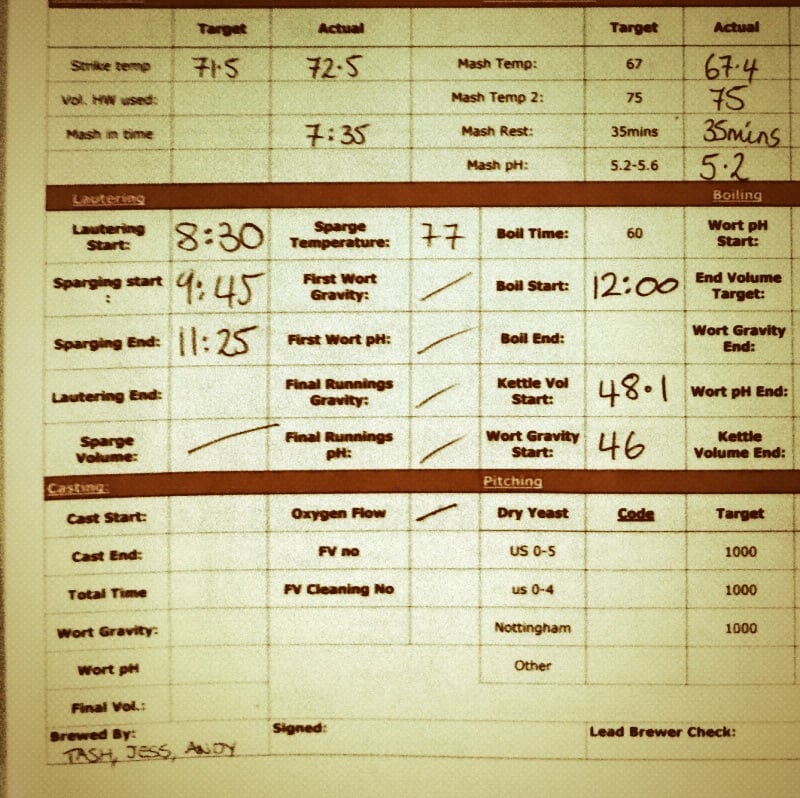 Target Actual Target Actual
Strike temp 71.5 72.5 Mash Temp: 67 67.4
Vol. HW used: Mash Temp 2: 75 75
Mash in time 7:35 Mash Rest: 35mins 35mins
Mash pH: 5.2-5.6 5.2
Lautering Boiling
Lautering Start: 8:30 Sparge Temperature: 77 Boil Time: 60 Wort pH Start:
Sparging start : 9:45 First Wort Gravity: Boil Start: 12:00 End Volume Target:
Sparging End: 11:25 First Wort pH: Boil End: Wort Gravity End:
Lautering End: Final Runnings Gravity: Kettle Vol Start: 48.1 Wort pH End:
Sparge Volume: Final Runnings pH: Wort Gravity Start: 46 Kettle Volume End:
Casting: Pitching
Cast Start: Oxygen Flow Dry Yeast Code Target
Cast End: FV no US 0-5 1000
Total Time FV Cleaning No us 0-4 1000
Wort Gravity: Nottingham 1000
Wort pH Other
Final Vol.:
Brewed By: Signed: Lead Brewer Check:
TASH, JESS, ANDY